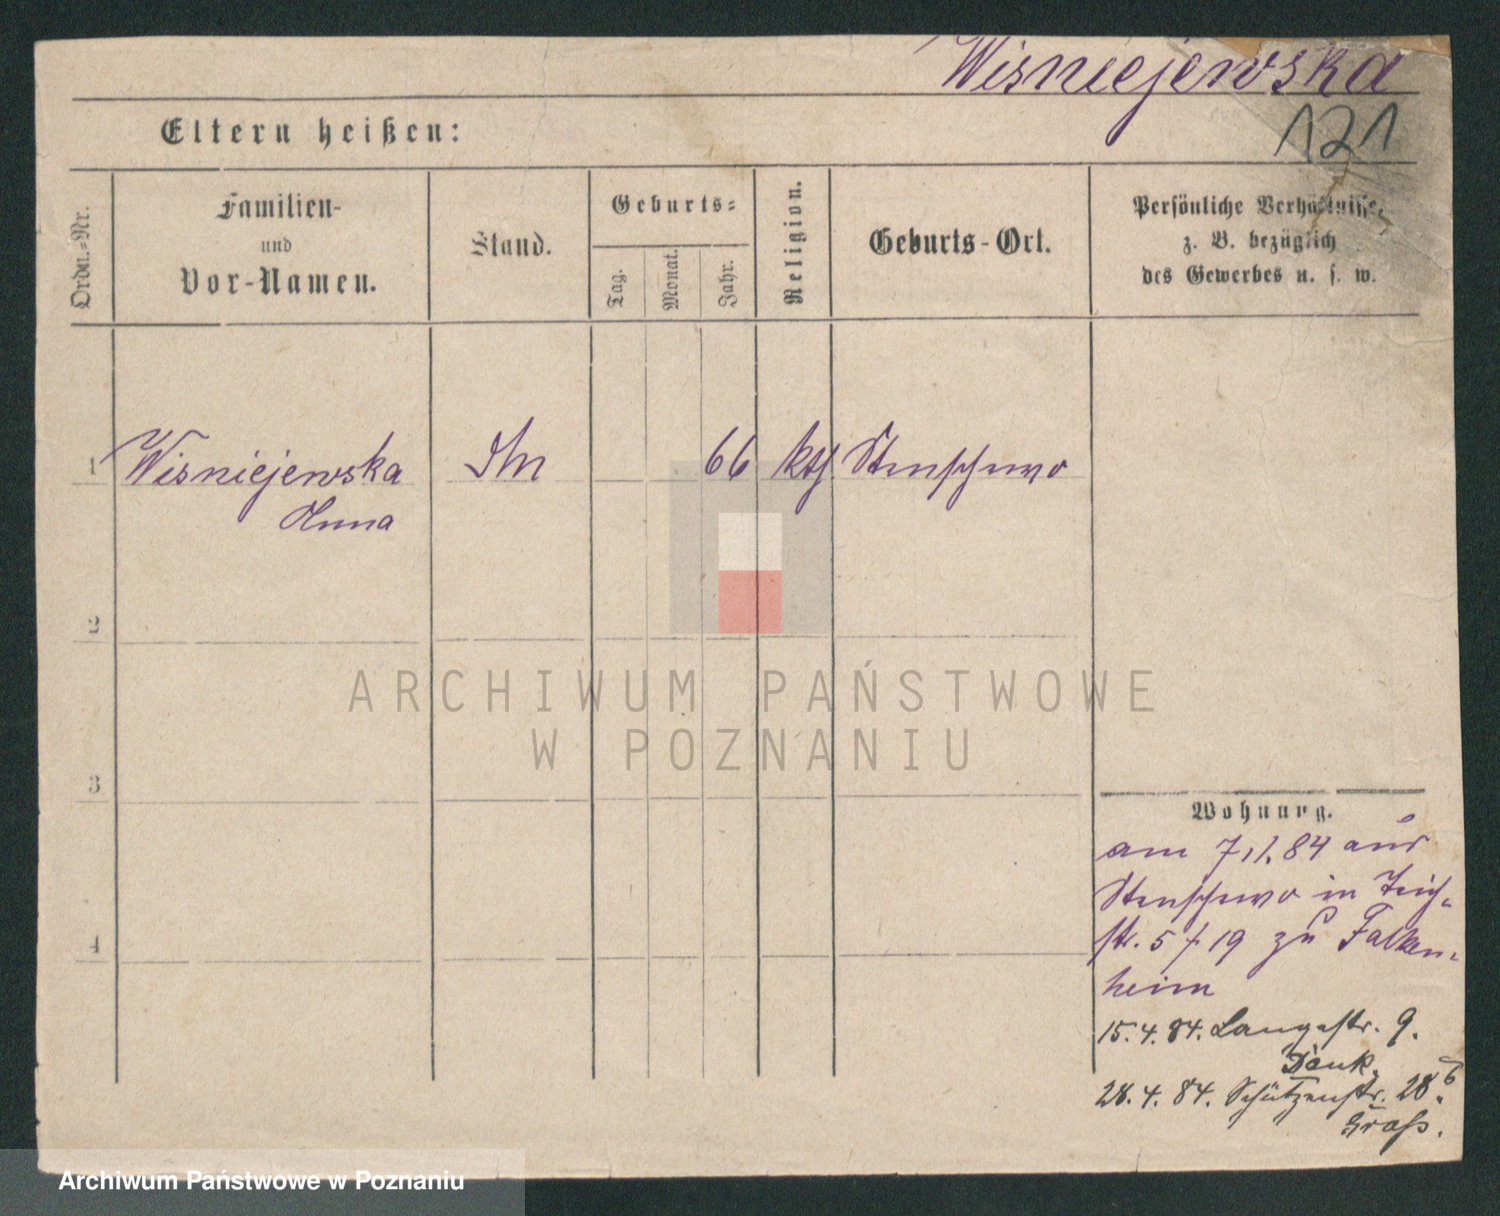 Wisniejewska
121
Eltern heißen:
Ordn.-Nr.
Familien-
und
Vor-Namen.
Stand.
Geburts-
Tag.
Monat.
Jahr.
Religion.
Geburts-Ort.
Persönliche Verhältnisse,
z. B. bezüglich
des Gewerbes u. s. w.
1 Wisniejewska 66 kth. Stenschewo
Anna
2
3
4
Wohnung.
am 7.1.84 aus
Stenschewo in Teich-
str. 5 f 19 zu Falken-
heim
15.4.84. Langestr. 9.
Dank.
28.4.84. Schützenstr. 28b.
Graß.
ARCHIWUM PAŃSTWOWE
W POZNANIU
Archiwum Państwowe w Poznaniu